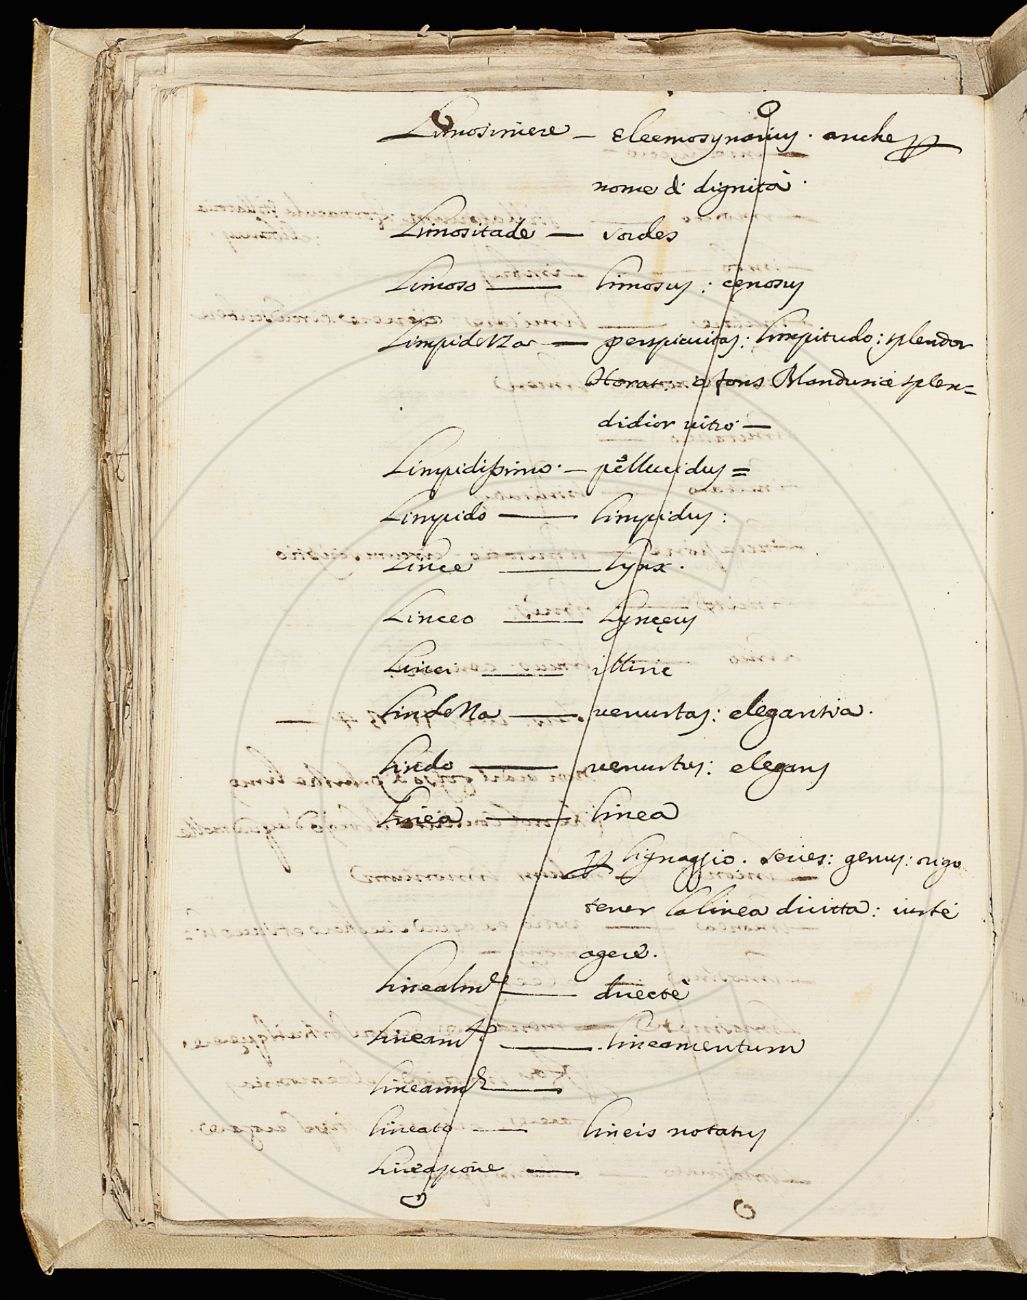 Limosiniere — Eleemosynarius. anche p
nome di dignità.
Limositade — sordes
Limoso — limosus: cęnosus
Limpidezza — perspicuitas: limpitudo: splendor
Horat: o fons Blandusiæ splen=
didior vitro —
Limpidissimo. — pellucidus =
Limpido — limpidus:
Lince — lynx.
Linceo — Lyncęus
Linci — illinc
Lindezza — venustas: elegantia.
Lindo — venustus: elegans
Linea — linea
p lignaggio. series: genus: origo
tener la linea diritta: iustè
agere.
Linealmᵉ — directè
Lineamᵗᵒ — lineamentum
Lineamᵉ —
Lineato — lineis notatus
Lineazione —